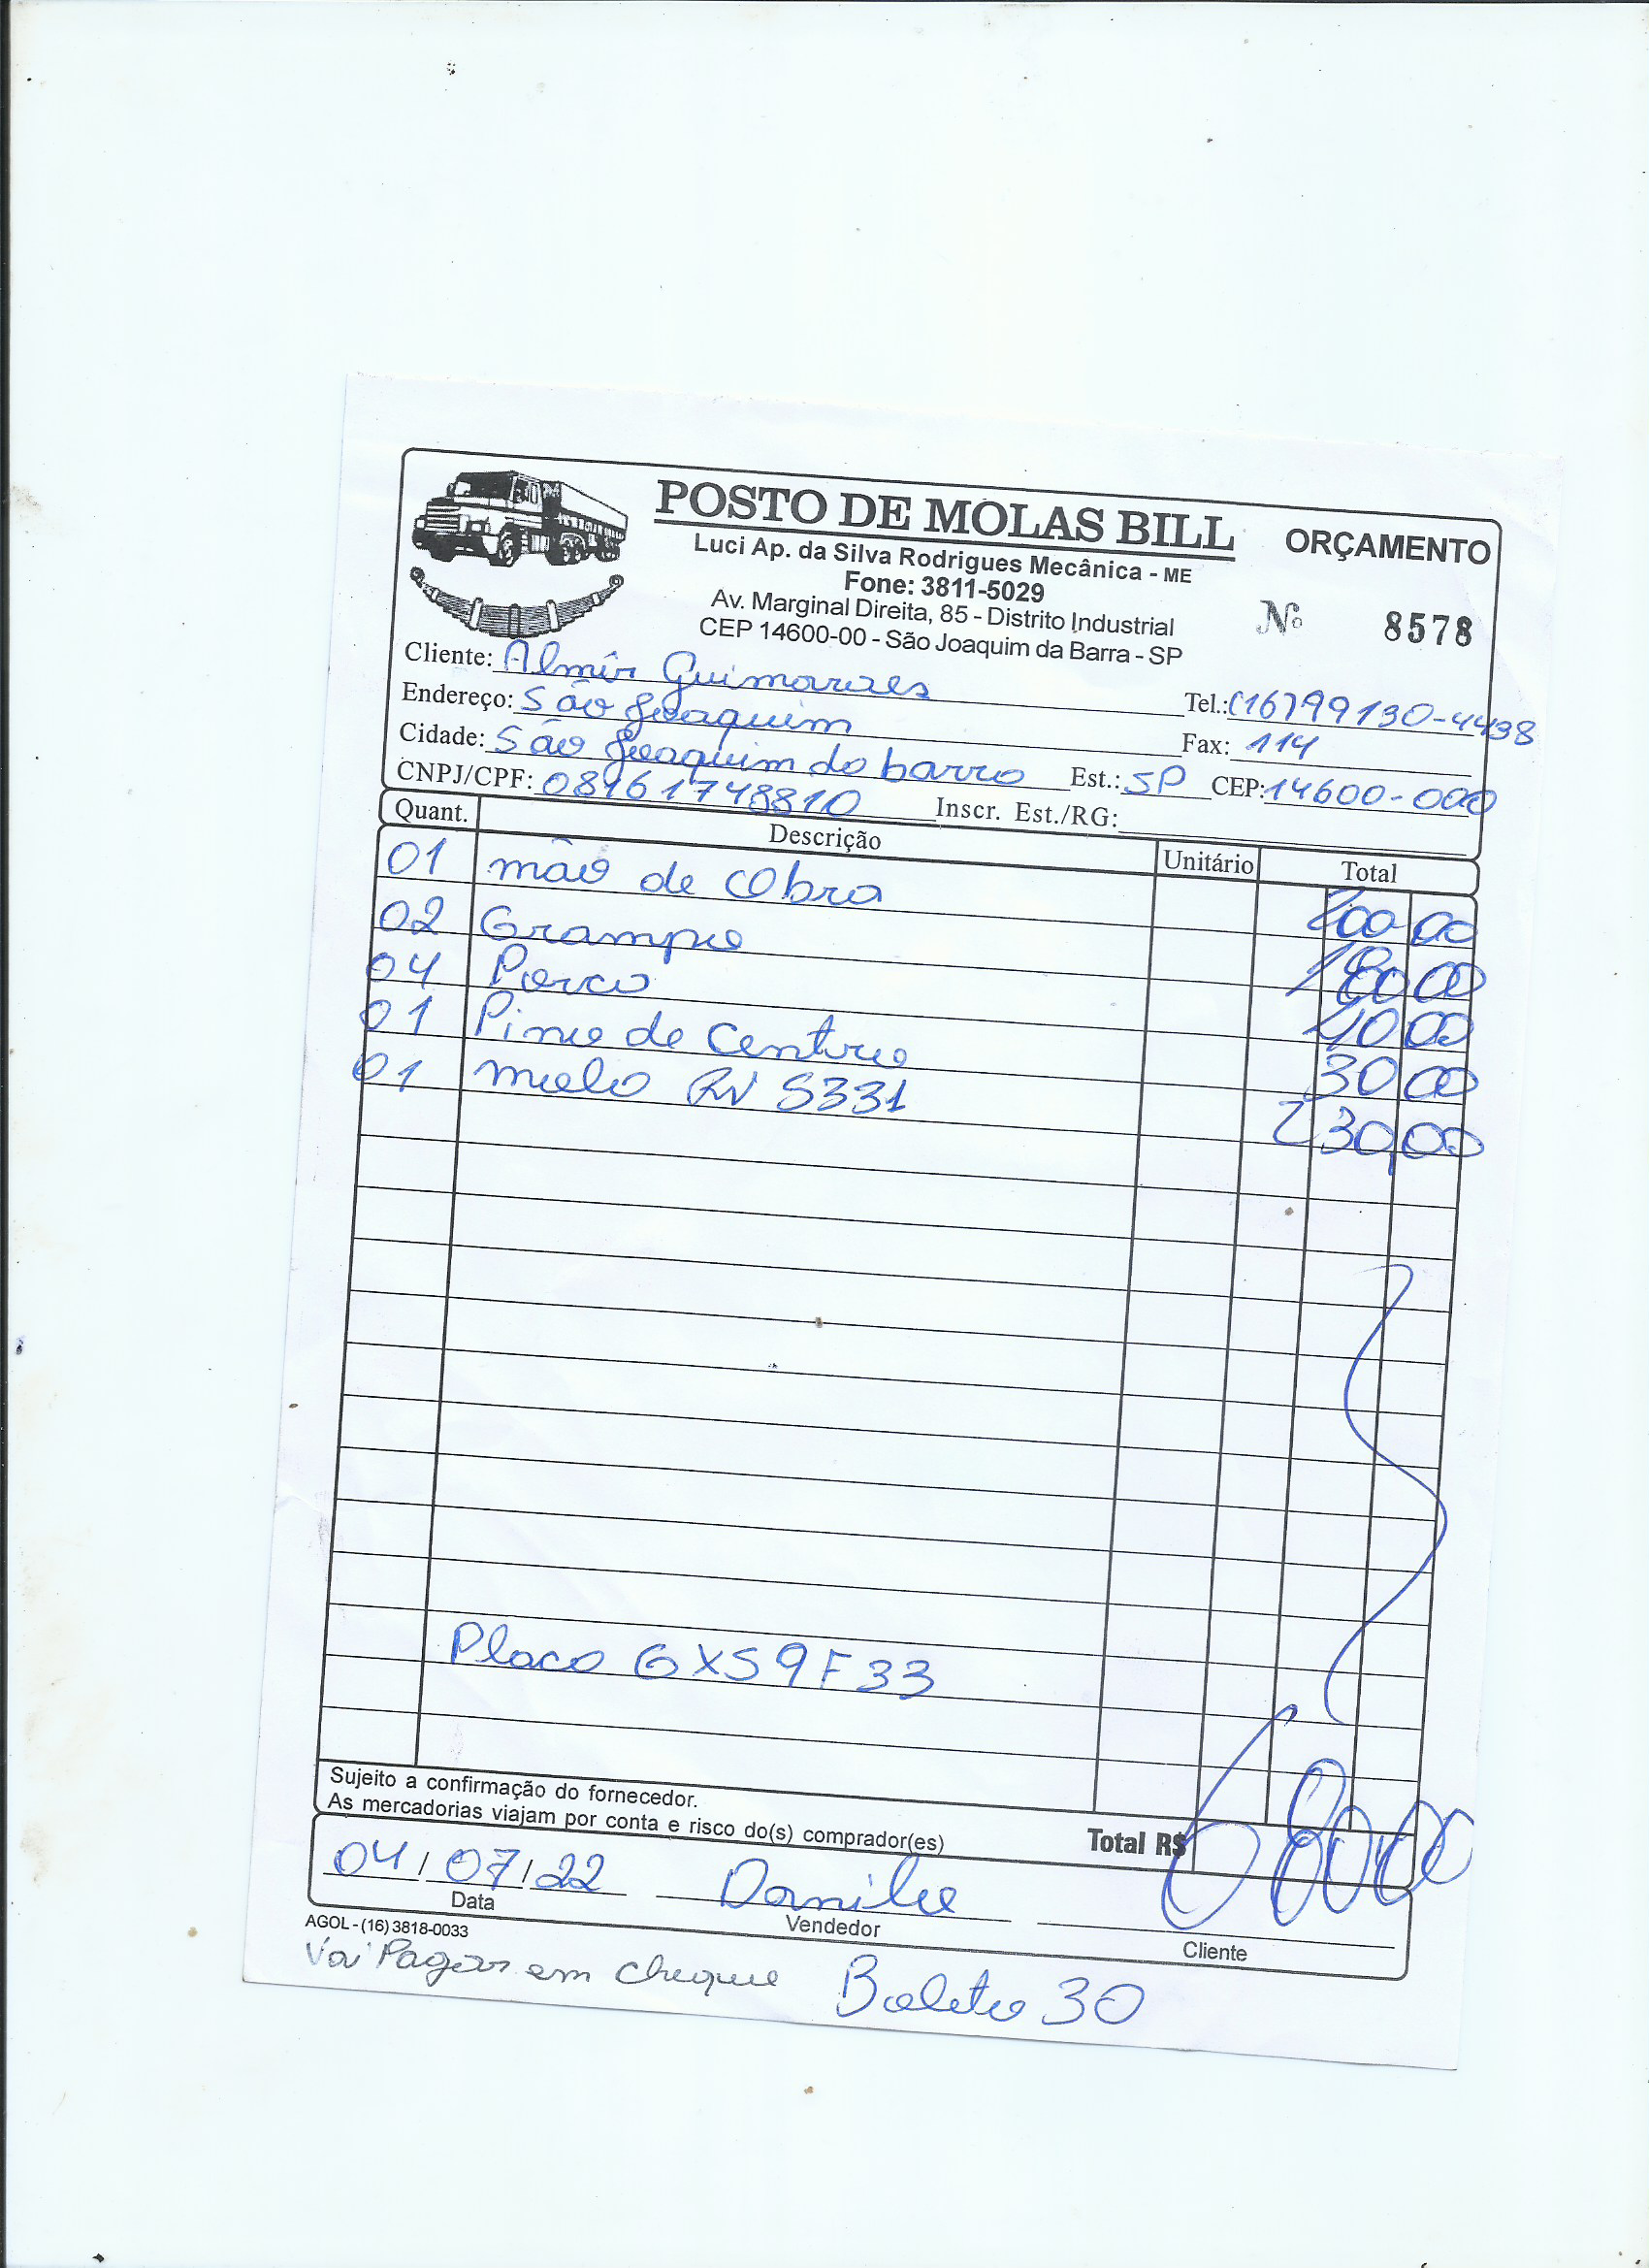 POSTO DE MOLAS BILL ORÇAMENTO
Luci Ap. da Silva Rodrigues Mecânica - ME
Fone: 3811-5029
Av. Marginal Direita, 85 - Distrito Industrial
CEP 14600-00 - São Joaquim da Barra - SP
Nº 8578
Cliente: Almir Guimaraes Tel.: (16) 99130-4438
Endereço: São Joaquim Fax: 114
Cidade: São Joaquim da barra Est.: SP CEP: 14600-000
CNPJ/CPF: 08961748810 Inscr. Est./RG:
Quant. Descrição Unitário Total
01 mão de Obra 200 00
02 Grampo 180 00
04 Porca 40 00
01 Pino de Centro 30 00
01 mola RN S331 230,00
Placa GXS9F33
Sujeito a confirmação do fornecedor.
As mercadorias viajam por conta e risco do(s) comprador(es)
Total R$ 680,00
04/07/22 Danilo
Data Vendedor Cliente
AGOL - (16) 3818-0033
Vai Pagar em cheque Boleto 30